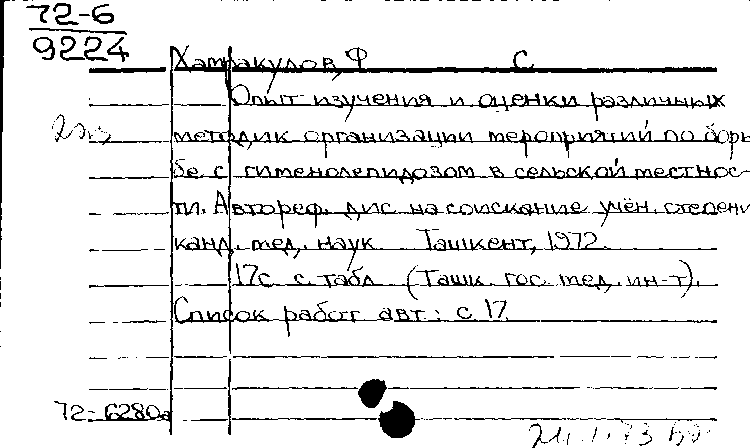 72-6
9224
Хамракулов, Ф С
Опыт изучения и оценки различных
методик организации мероприятий по борь
бе с гименолепидозом в сельской местнос-
ти. Автореф. дис. на соискание учён. степени
канд. мед. наук. Ташкент, 1972.
17с. с табл. (Ташк. гос. мед. ин-т).
Список работ авт.: с 17.
72-6280а